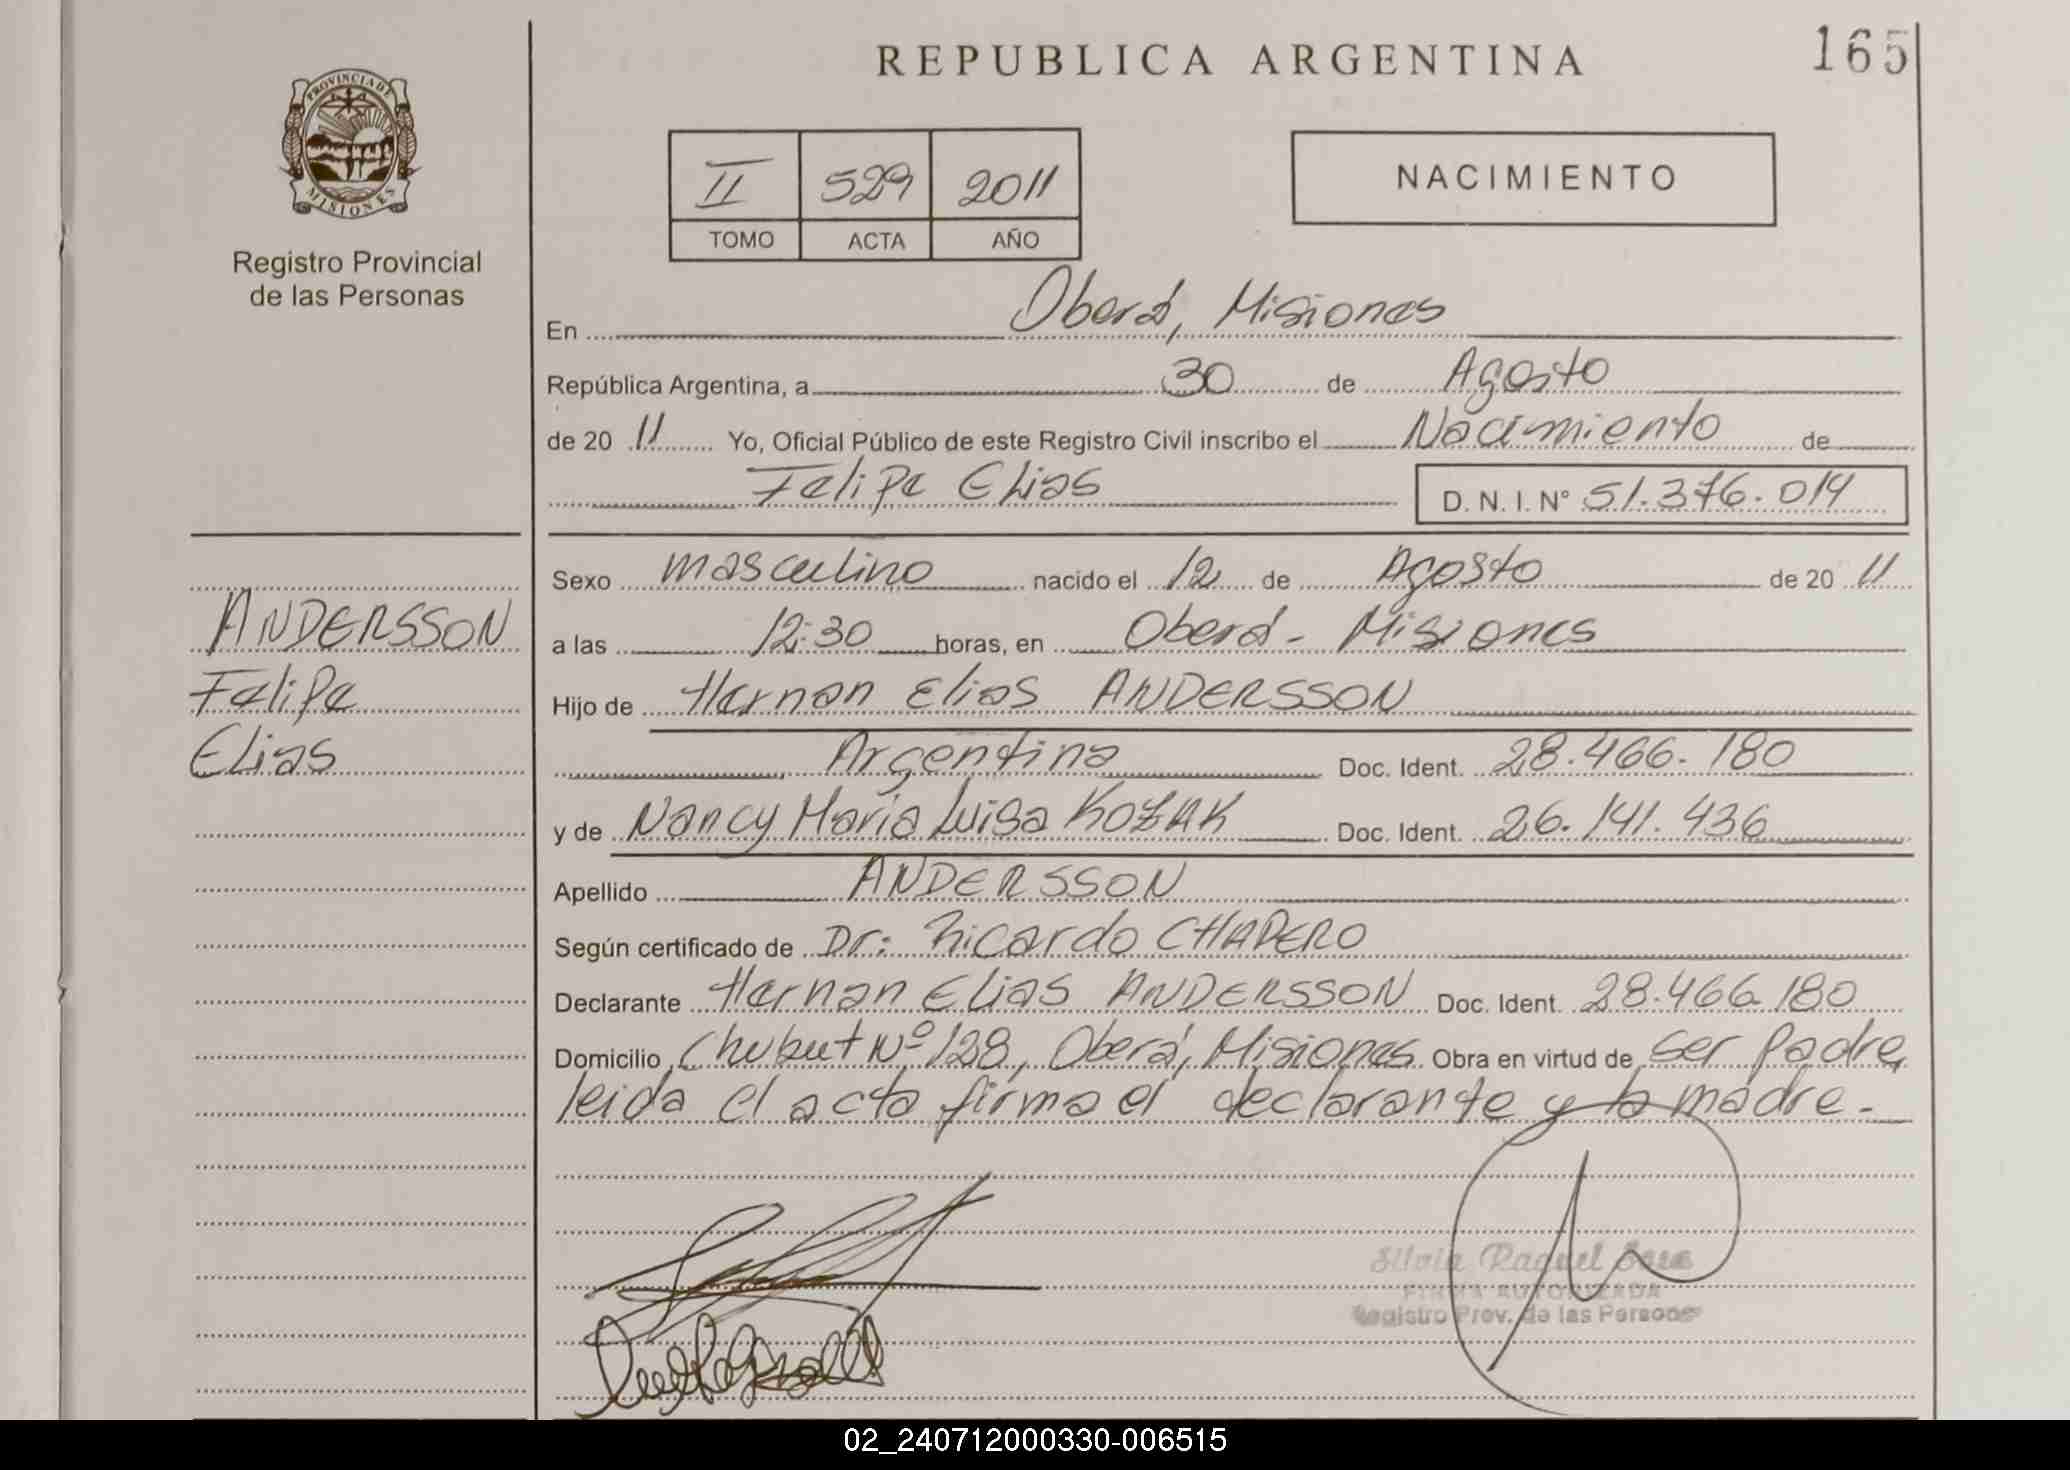 REPUBLICA ARGENTINA
165
PROVINCIA DE
MISIONES
Registro Provincial
de las Personas
II 529 2011
TOMO ACTA AÑO
NACIMIENTO
En Oberá, Misiones
República Argentina, a 30 de Agosto
de 20 11 Yo, Oficial Público de este Registro Civil inscribo el Nacimiento de
Felipe Elias D. N. I. N° 51.376.014
Sexo masculino nacido el 12 de Agosto de 20 11
a las 12:30 horas, en Oberá - Misiones
Hijo de Hernan Elias ANDERSSON
Argentina Doc. Ident. 28.466.180
y de Nancy Maria Luisa KOZAK Doc. Ident. 26.141.436
Apellido ANDERSSON
Según certificado de Dr: Ricardo CHAPERO
Declarante Hernan Elias ANDERSSON Doc. Ident. 28.466.180
Domicilio Chubut Nº 128, Oberá, Misiones Obra en virtud de ser padre,
leida el acta firma el declarante y la madre.-
ANDERSSON
Felipe
Elias
Silvia Raquel
FIRMA AUTORIZADA
Registro Prov. de las Personas
02_240712000330-006515